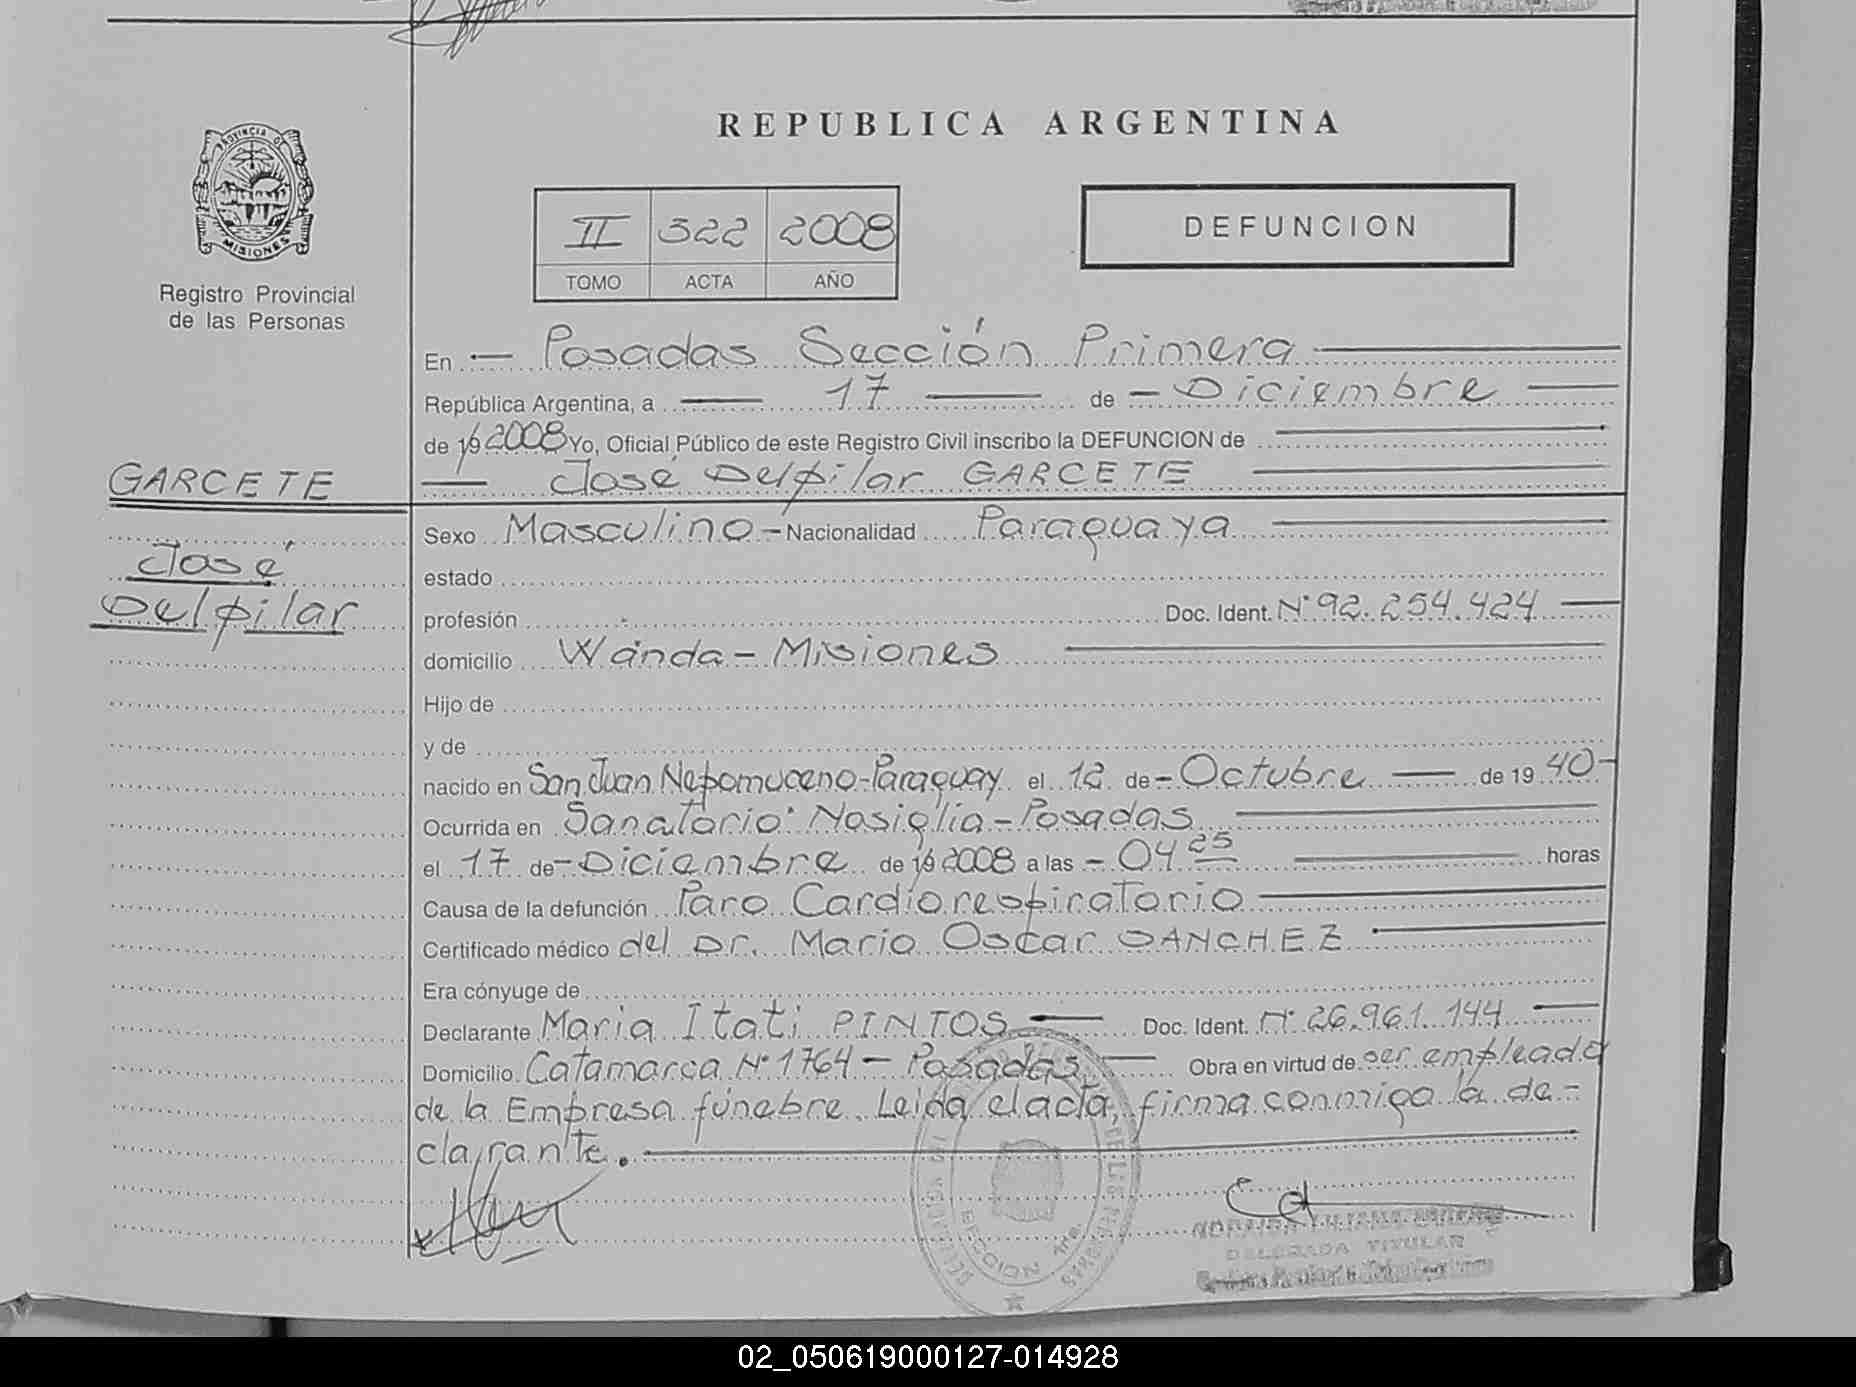 REPUBLICA ARGENTINA
PROVINCIA DE
MISIONES
Registro Provincial
de las Personas
II 322 2008
TOMO ACTA AÑO
DEFUNCION
En Posadas Sección Primera
República Argentina, a 17 de Diciembre
de 19 2008 Yo, Oficial Público de este Registro Civil inscribo la DEFUNCION de
José Delpilar GARCETE
GARCETE
José
Delpilar
Sexo Masculino - Nacionalidad Paraguaya
estado
profesión Doc. Ident. N° 92.254.424
domicilio Wanda - Misiones
Hijo de
y de
nacido en San Juan Nepomuceno - Paraguay el 12 de - Octubre de 19 40 -
Ocurrida en Sanatorio Nosiglia - Posadas
el 17 de - Diciembre de 19 2008 a las - 04 25 horas
Causa de la defunción Paro Cardiorespiratorio
Certificado médico del Dr. Mario Oscar SANCHEZ
Era cónyuge de
Declarante Maria Itati PINTOS Doc. Ident. N° 26.961.144
Domicilio Catamarca N° 1764 - Posadas Obra en virtud de ser empleada
de la Empresa fúnebre. Leida el acta, firma conmigo la de-
clarante.
SECCION 1ra.
DELEGADA TITULAR
02_050619000127-014928